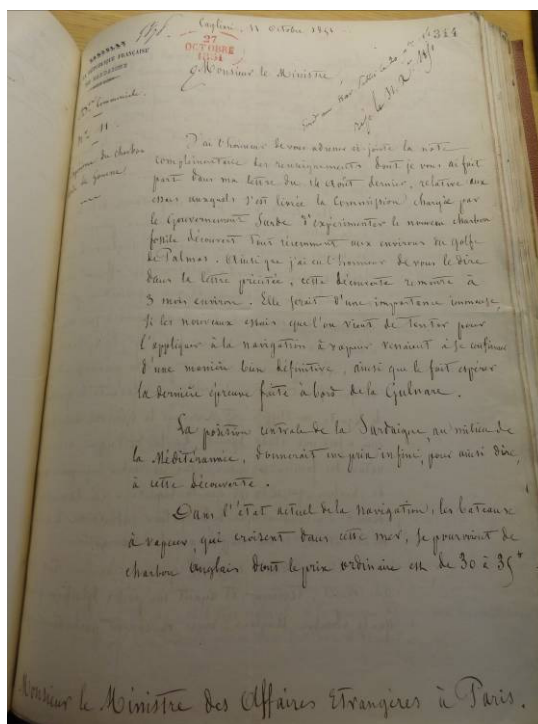 Cagliari, 14 Octobre 1851
311
27
OCTOBRE
1851
RÉPUBLIQUE FRANÇAISE
Monsieur le Ministre,
Don Commerciale.
N° 11
du charbon
J'ai l'honneur de vous adresser ci-jointe la note
complémentaire des renseignements dont je vous ai fait
part dans ma lettre du 14 Août dernier, relative aux
essais auxquels s'est livrée la Commission chargée par
le Gouvernement Sarde d'expérimenter le nouveau charbon
fossile découvert tout récemment aux environs du golfe
de Palmas. Ainsi que j'ai eu l'honneur de vous le dire
dans la lettre précitée, cette découverte remonte à
3 mois environ. Elle serait d'une importance immense,
si les nouveaux essais que l'on vient de tenter pour
l'appliquer à la navigation à vapeur venaient à se confirmer
d'une manière bien définitive, ainsi que le fait espérer
la dernière épreuve faite à bord de la Gulnare.
La position centrale de la Sardaigne, au milieu de
la Méditerranée, donnerait un prix infini, pour ainsi dire,
à cette découverte.
Dans l'état actuel de la navigation, les bateaux
à vapeur, qui croisent dans cette mer, se pourvoient de
charbon anglais dont le prix ordinaire est de 30 à 35
Monsieur le Ministre des Affaires Etrangères à Paris.